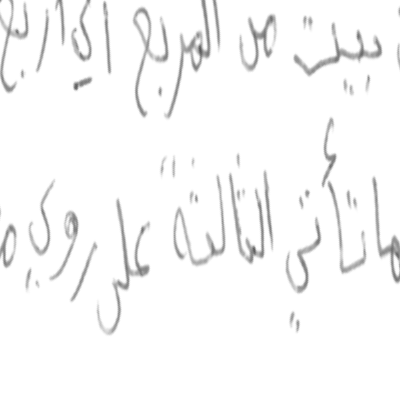 بيت من المربع الى اربع
ما تأتي الثالثة على روي